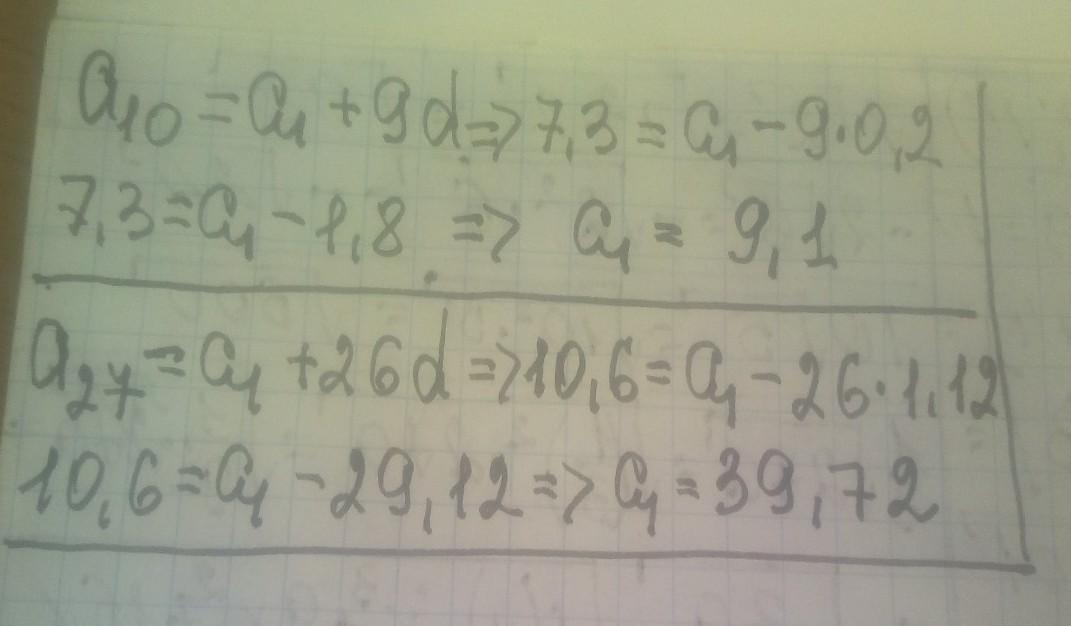 a₁₀ = a₁ + 9d => 7,3 = a₁ - 9·0,2
7,3 = a₁ - 1,8 => a₁ = 9,1
a₂₇ = a₁ + 26d => 10,6 = a₁ - 26·1,12
10,6 = a₁ - 29,12 => a₁ = 39,72